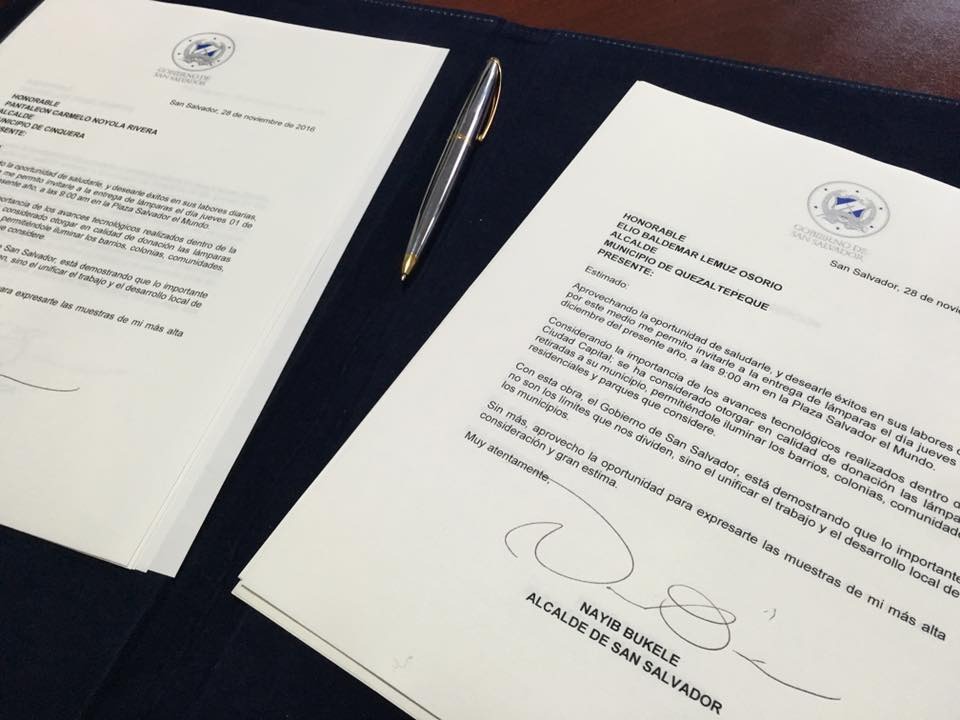 GOBIERNO DE
SAN SALVADOR
San Salvador, 28 de noviembre de 2016
HONORABLE
PANTALEON CARMELO NOYOLA RIVERA
ALCALDE
MUNICIPIO DE CINQUERA
la oportunidad de saludarle, y desearle éxitos en sus labores diarias,
me permito invitarle a la entrega de lámparas el día jueves 01 de
presente año, a las 9:00 am en la Plaza Salvador el Mundo.
importancia de los avances tecnológicos realizados dentro de la
considerado otorgar en calidad de donación las lámparas
permitiéndole iluminar los barrios, colonias, comunidades,
que considere
de San Salvador, está demostrando que lo importante
sino el unificar el trabajo y el desarrollo local de
para expresarte las muestras de mi más alta
GOBIERNO DE
SAN SALVADOR
San Salvador, 28 de
HONORABLE
ELIO BALDEMAR LEMUZ OSORIO
ALCALDE
MUNICIPIO DE QUEZALTEPEQUE
PRESENTE:
Estimado:
Aprovechando la oportunidad de saludarle, y desearle éxitos en sus labores
por este medio me permito invitarle a la entrega de lámparas el día jueves
diciembre del presente año, a las 9:00 am en la Plaza Salvador el Mundo.
Considerando la importancia de los avances tecnológicos realizados dentro
Ciudad Capital; se ha considerado otorgar en calidad de donación las
retiradas a su municipio, permitiéndole iluminar los barrios, colonias,
residenciales y parques que considere.
Con esta obra, el Gobierno de San Salvador, está demostrando que lo importante
no son los límites que nos dividen, sino el unificar el trabajo y el desarrollo local de
los municipios.
Sin más, aprovecho la oportunidad para expresarte las muestras de mi más alta
consideración y gran estima.
Muy atentamente,
NAYIB BUKELE
ALCALDE DE SAN SALVADOR